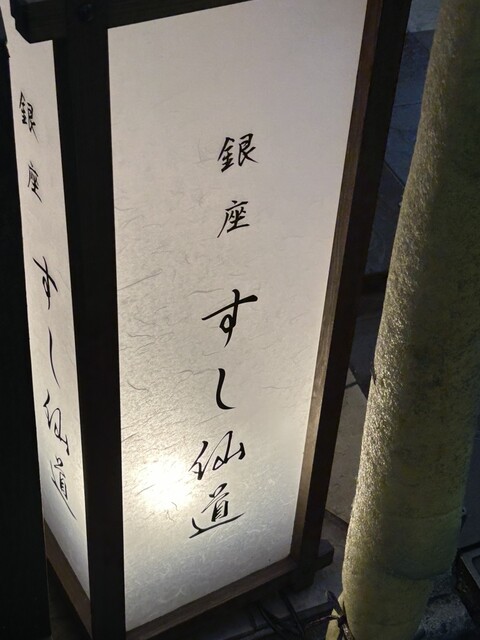 銀座 すし仙道
銀座 すし仙道